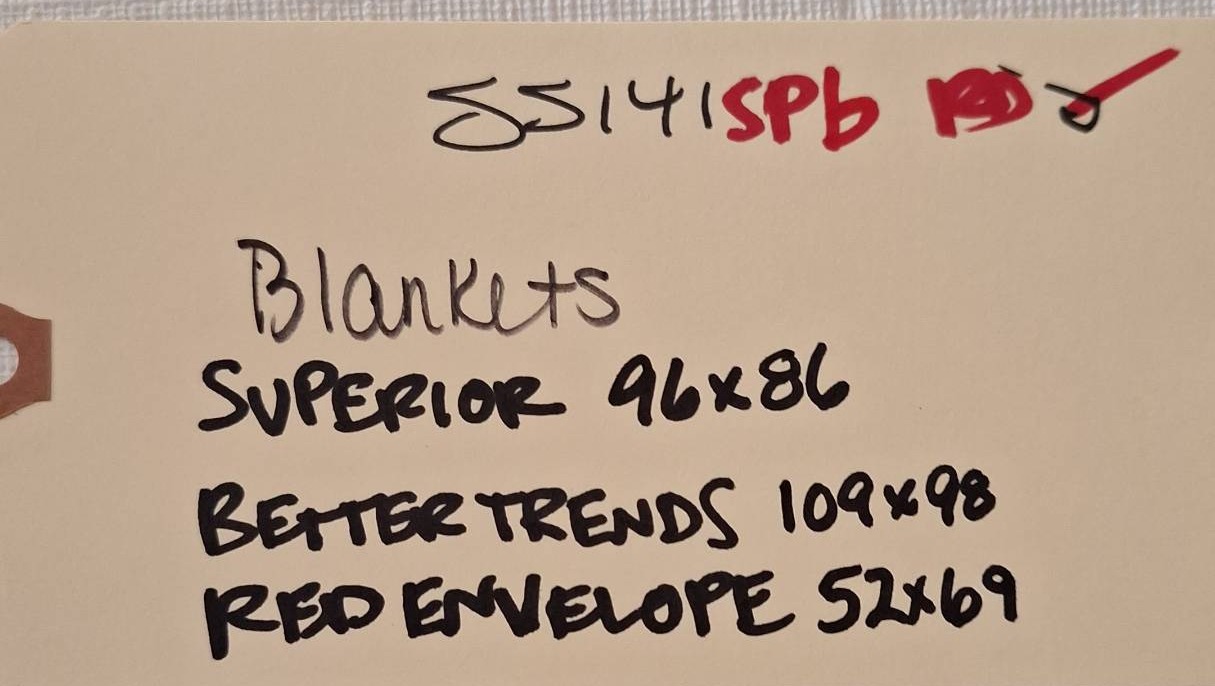 SS141SPb
Blankets
SUPERIOR 96x86
BETTER TRENDS 109x98
RED ENVELOPE 52x69